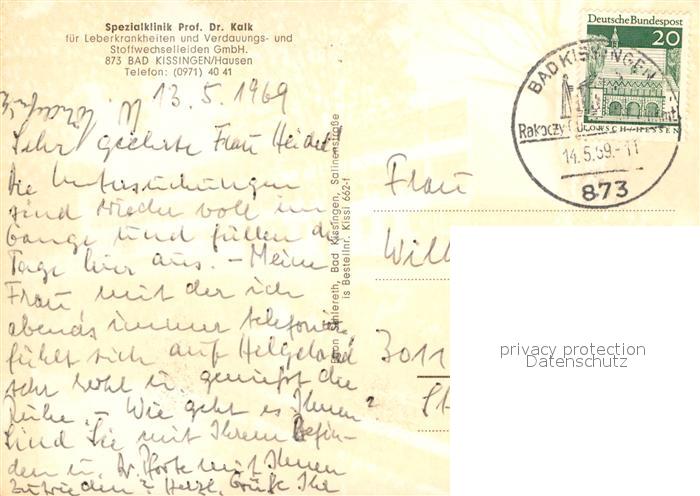 Spezialklinik Prof. Dr. Kalk
für Leberkrankheiten und Verdauungs- und
Stoffwechselleiden GmbH.
873 BAD KISSINGEN/Hausen
Telefon: (0971) 40 41
13.5.1969
Sehr geehrte Frau Heidel!
Die Untersuchungen
sind wieder voll im
Gange und füllen die
Tage hier aus. - Meine
Frau mit der ich
abends immer telefonier,
fühlt sich auf Helgoland
sehr wohl u. genießt die
Ruhe. - Wie geht es Ihnen?
Sind Sie mit Ihrem Befin-
den u. Dr. Pforte mit Ihnen
zufrieden? Herzl. Grüße Ihr
Schlereth, Bad Kissingen, Salinenstraße
Bestellnr. Kissi 662-f
Deutsche Bundespost
20
LORSCH/HESSEN
BAD KISSINGEN
Rakoczy
14.5.69.-11
873
Frau
Will
3011
privacy protection
Datenschutz